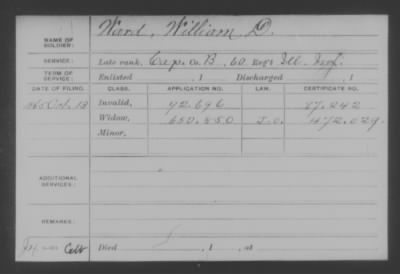 NAME OF SOLDIER: Ward, William D.
SERVICE: Late rank, Cap. Co. B, 60 Reg't Ill. Inf.
TERM OF SERVICE: Enlisted , 1 Discharged , 1
DATE OF FILING. CLASS. APPLICATION NO. LAW. CERTIFICATE NO.
Oct. 13 Invalid, 42.696 87.242
Widow, 650.550 J.O. 472.029.
Minor,
ADDITIONAL SERVICES:
REMARKS:
Died , 1 , at